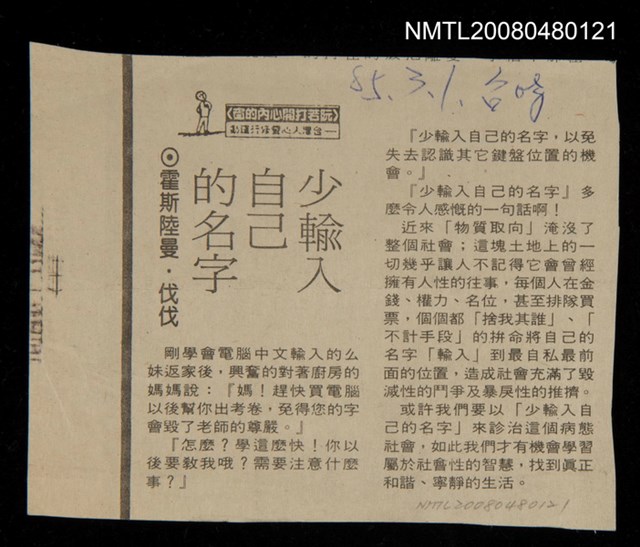 NMTL20080480121
85.3.1.台時
《阮若打開心內的窗》
少輸入
自己
的名字
◎霍斯陸曼・伐伐
剛學會電腦中文輸入的么
妹返家後，興奮的對著廚房的
媽媽說：『媽！趕快買電腦
以後幫你出考卷，免得您的字
會毀了老師的尊嚴。』
『怎麼？學這麼快！你以
後要教我哦？需要注意什麼
事？』
『少輸入自己的名字，以免
失去認識其它鍵盤位置的機
會。』
『少輸入自己的名字』多
麼令人感慨的一句話啊！
近來「物質取向」淹沒了
整個社會；這塊土地上的一
切幾乎讓人不記得它會曾經
擁有人性的往事，每個人在金
錢、權力、名位，甚至排隊買
票，個個都「捨我其誰」、「
不計手段」的拼命將自己的
名字「輸入」到最自私最前
面的位置，造成社會充滿了毀
滅性的鬥爭及暴戾性的推擠。
或許我們要以「少輸入自
己的名字」來診治這個病態
社會，如此我們才有機會學習
屬於社會性的智慧，找到眞正
和諧、寧靜的生活。
NMTL20080480121